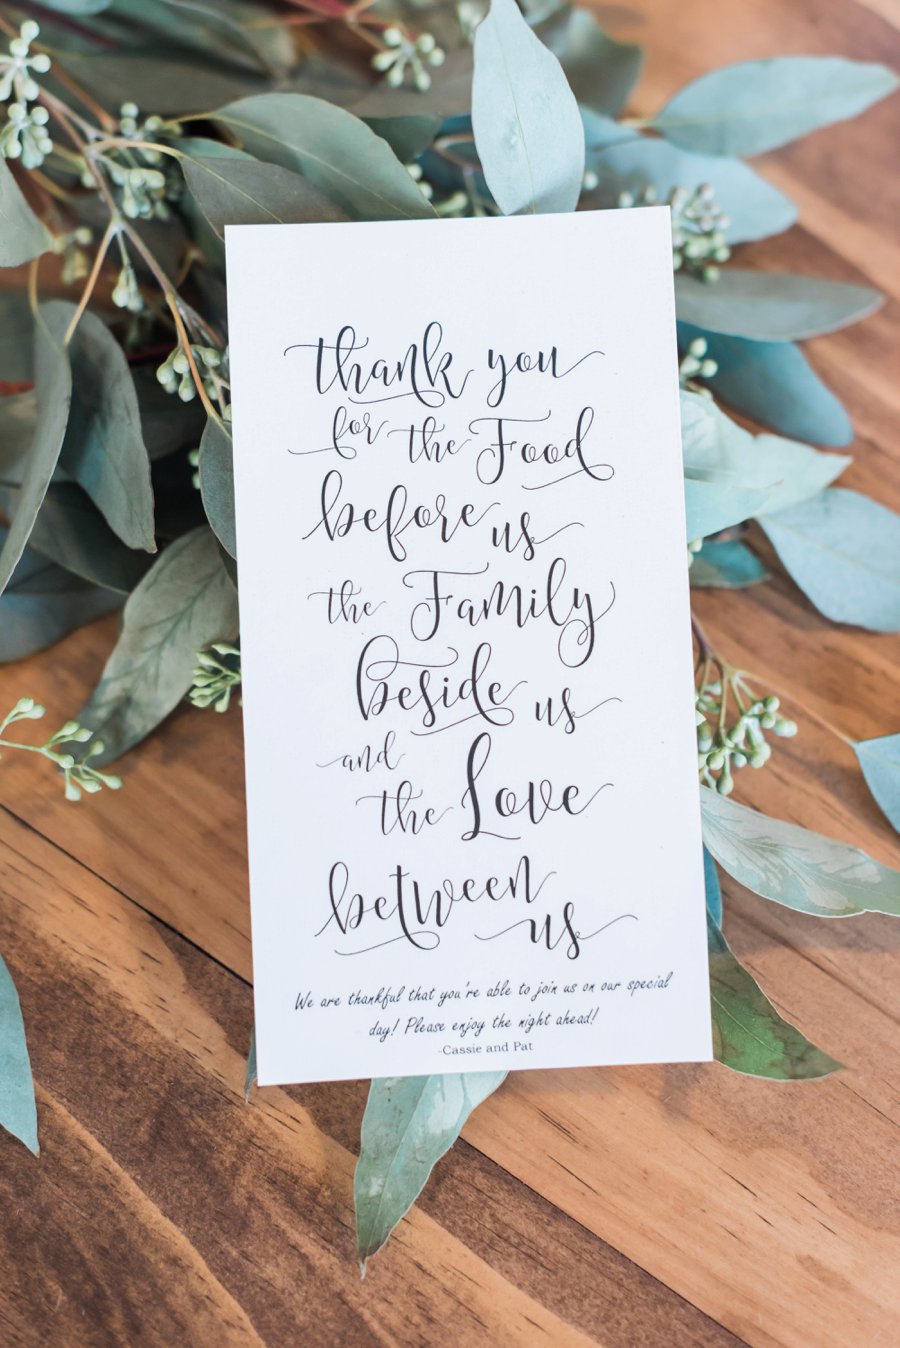 thank you
for the Food
before us
the Family
beside us
and
the Love
between
us
We are thankful that you're able to join us on our special
day! Please enjoy the night ahead!
-Cassie and Pat